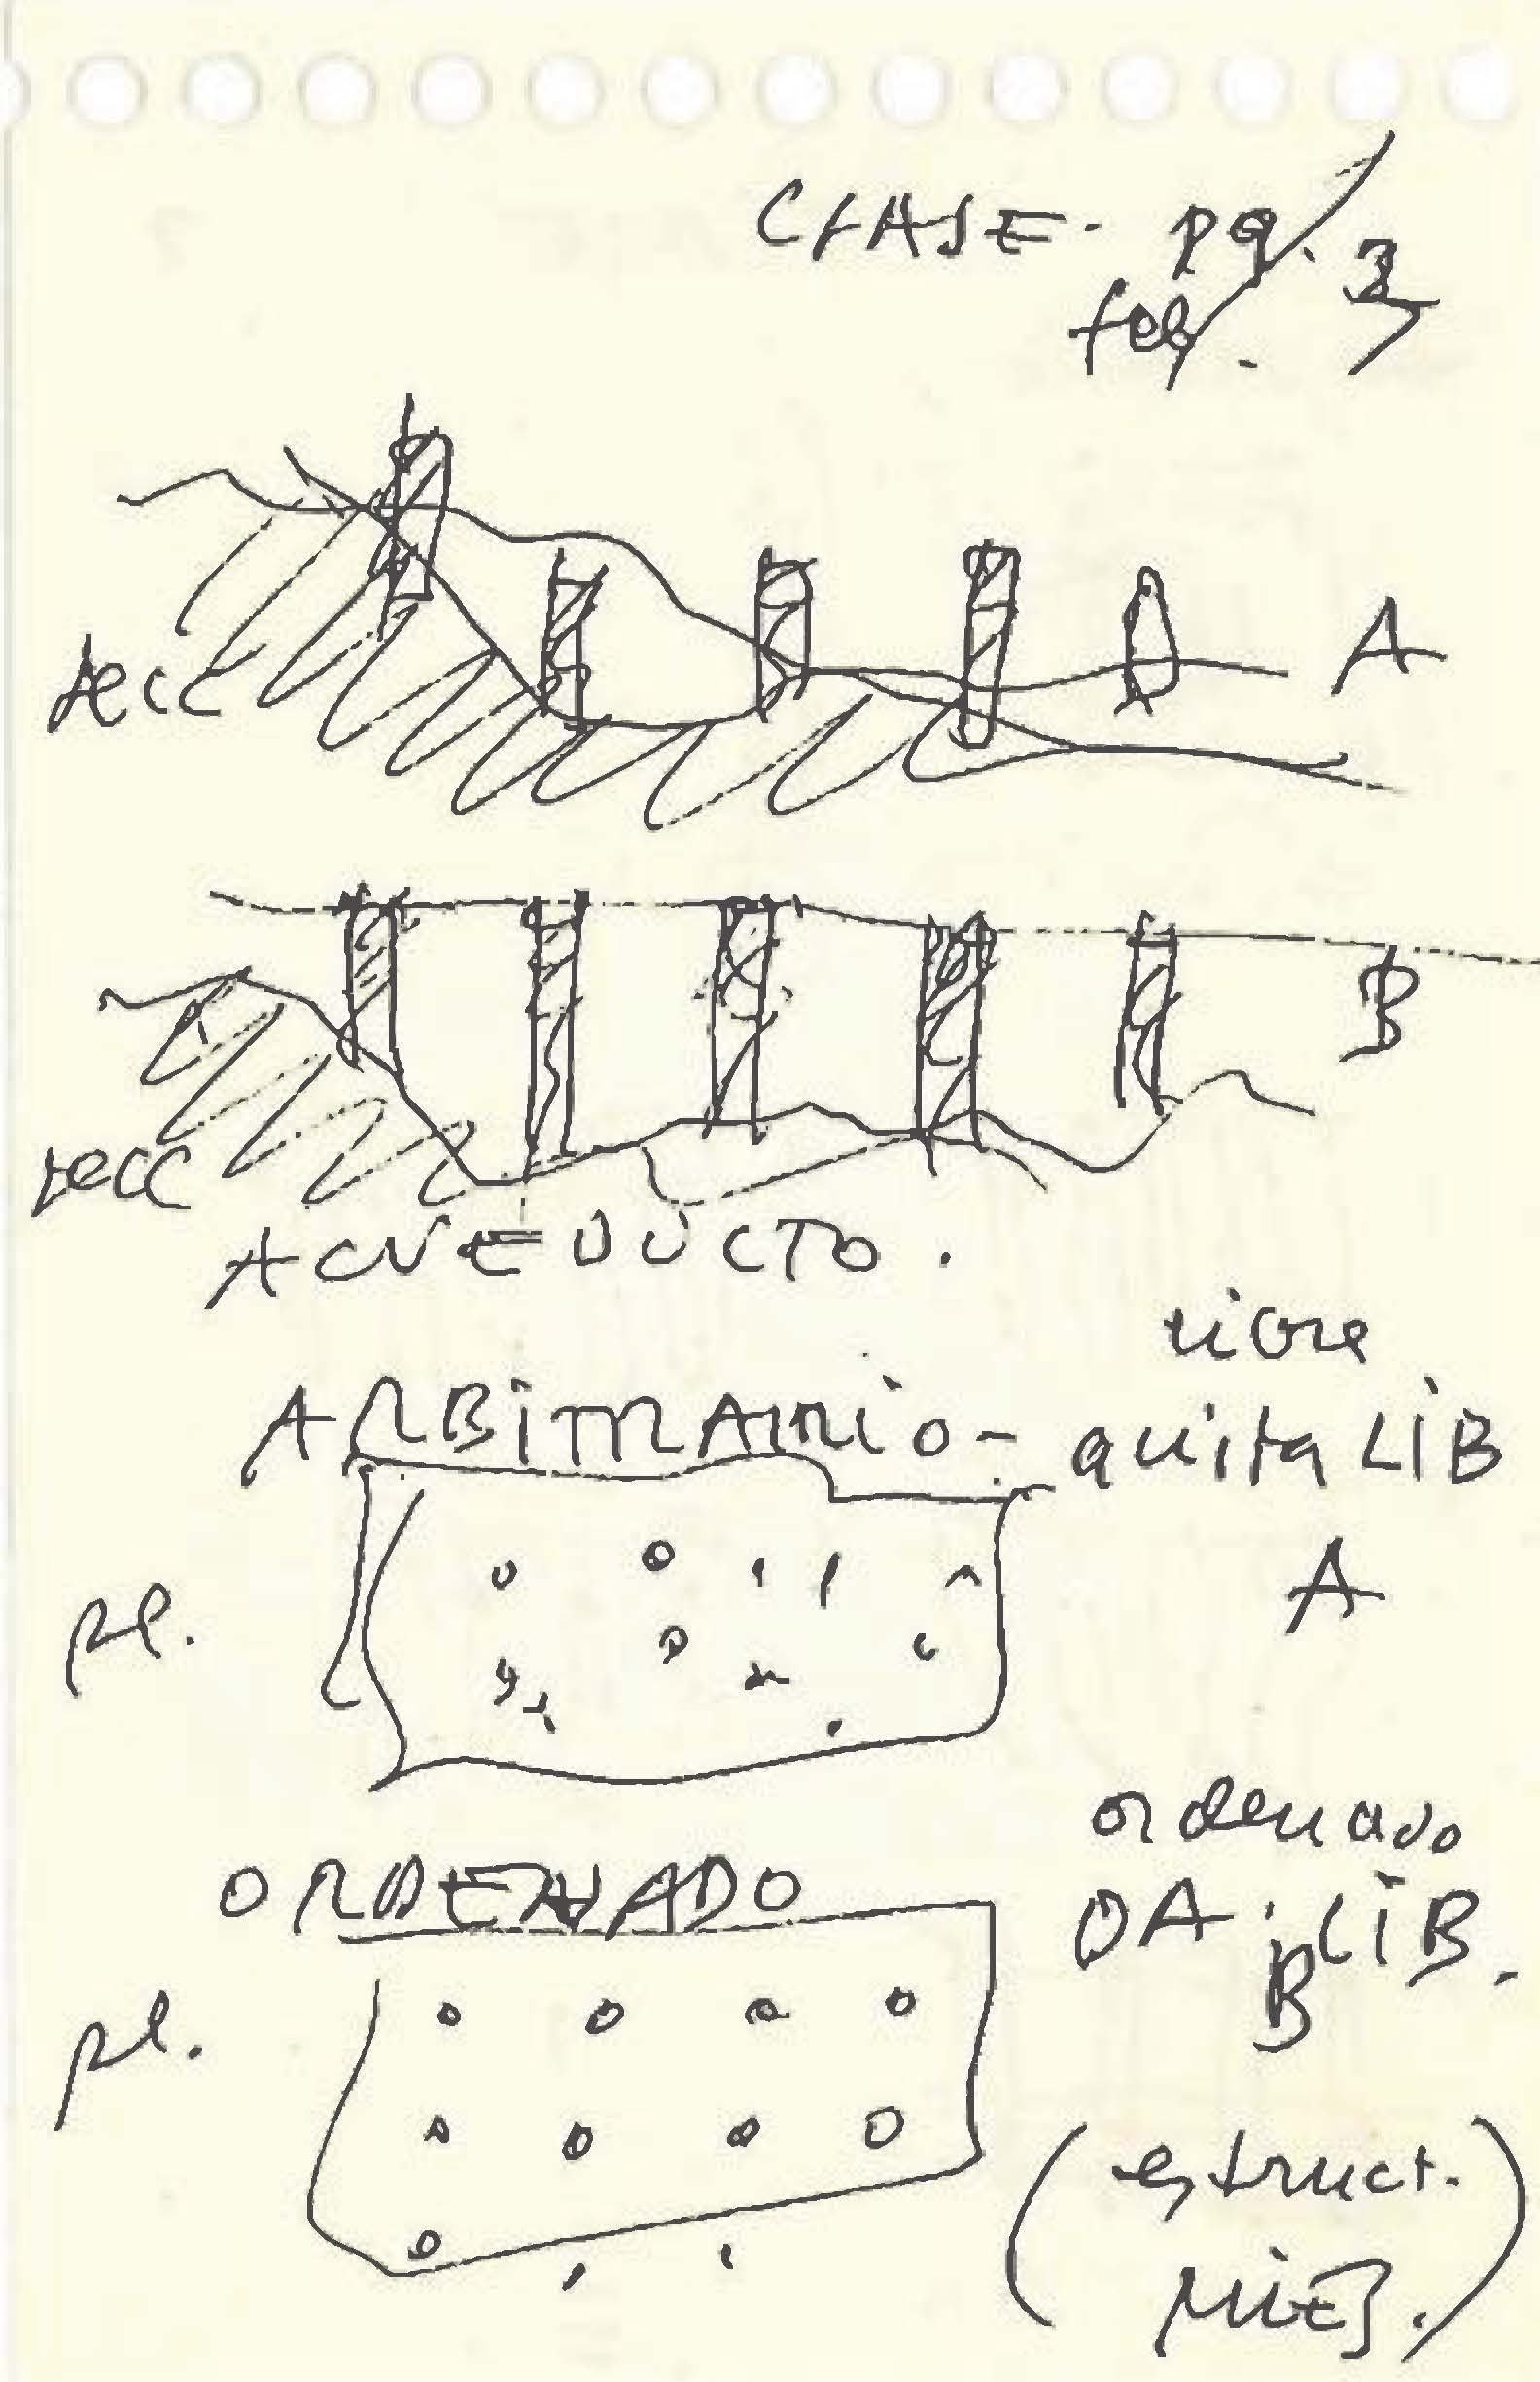 CLASE. pg. 3
feb.
secc
A
B
secc
ACUEDUCTO.
libre
ARBITRARIO - quita LIB
A
pl.
ordenado
ORDENADO
DA LIB.
B
pl.
(estruct.
MIES.)